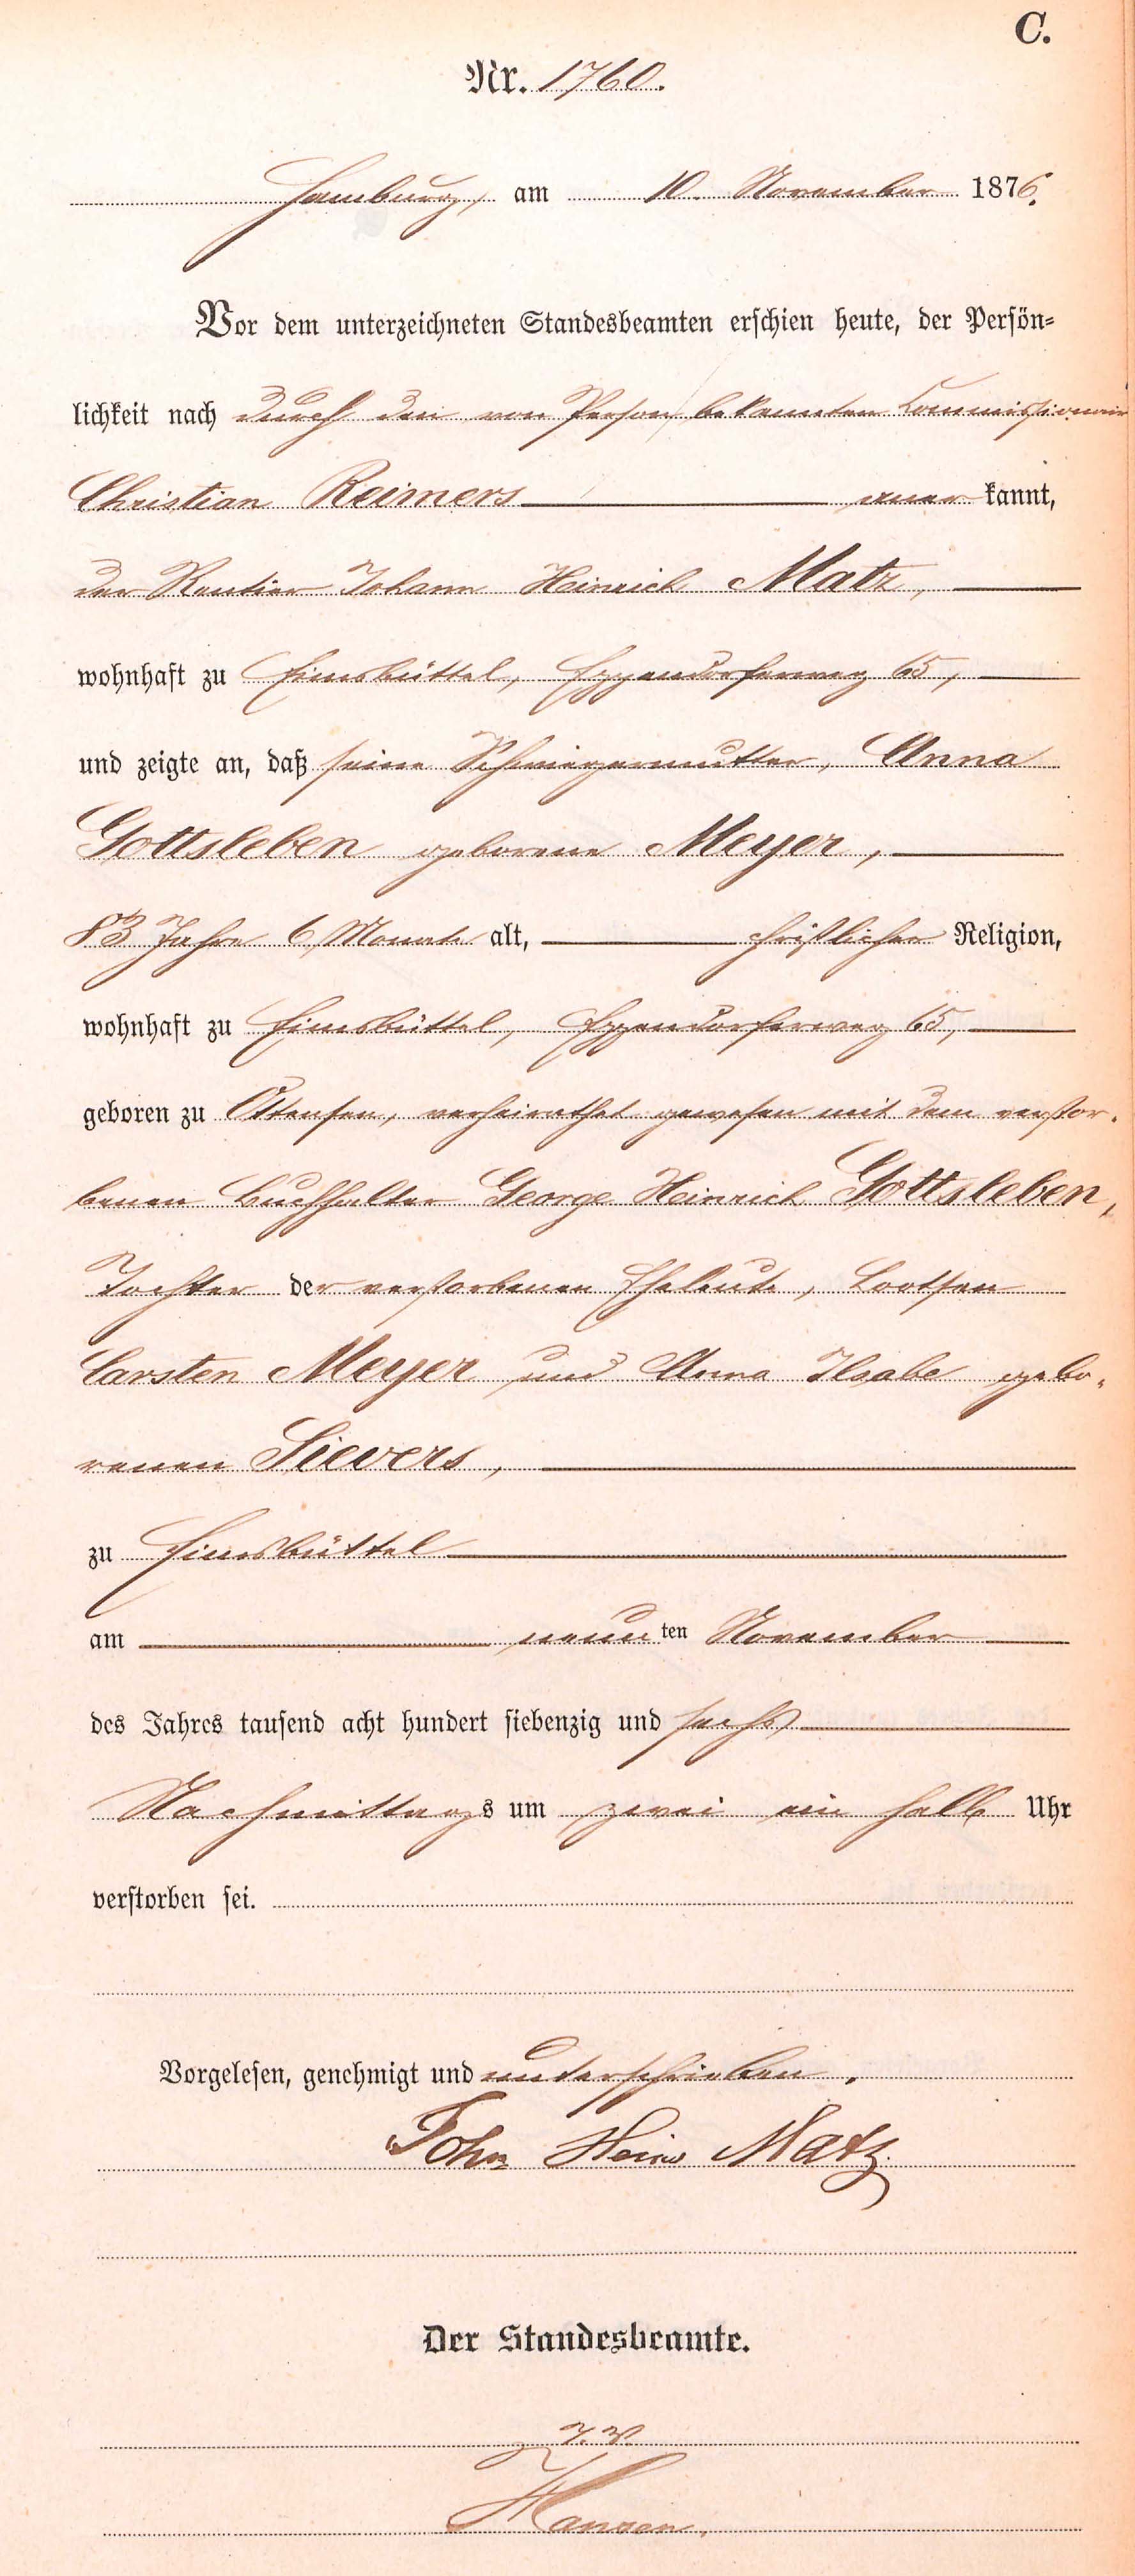 C.
Nr. 1760.
Hamburg, am 10. November 1876.
Vor dem unterzeichneten Standesbeamten erschien heute, der Persön-
lichkeit nach durch den von Person bekannten Commissionair
Christian Reimers aner kannt,
der Rentier Johann Heinrich Matz,
wohnhaft zu Eimsbüttel, Eppendorferweg 65,
und zeigte an, daß seine Schwiegermutter, Anna
Gottsleben geborene Meyer,
83 Jahre 6 Monate alt, christlicher Religion,
wohnhaft zu Eimsbüttel, Eppendorferweg 65,
geboren zu Ottensen, verheirathet gewesen mit dem verstor-
benen Buchhalter George Heinrich Gottsleben,
Tochter der verstorbenen Eheleute, Lootsen
Carsten Meyer und Anna Ilsabe gebo-
renen Sievers,
zu Eimsbüttel
am neunten November
des Jahres tausend acht hundert siebenzig und sechs
Nachmittags um zwei ein halb Uhr
verstorben sei.
Vorgelesen, genehmigt und unterschrieben.
John Heinr Matz.
Der Standesbeamte.
J. V.
Hansen.